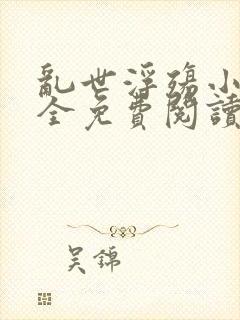 亂世浮殤小
全免費閱讀
吳錦